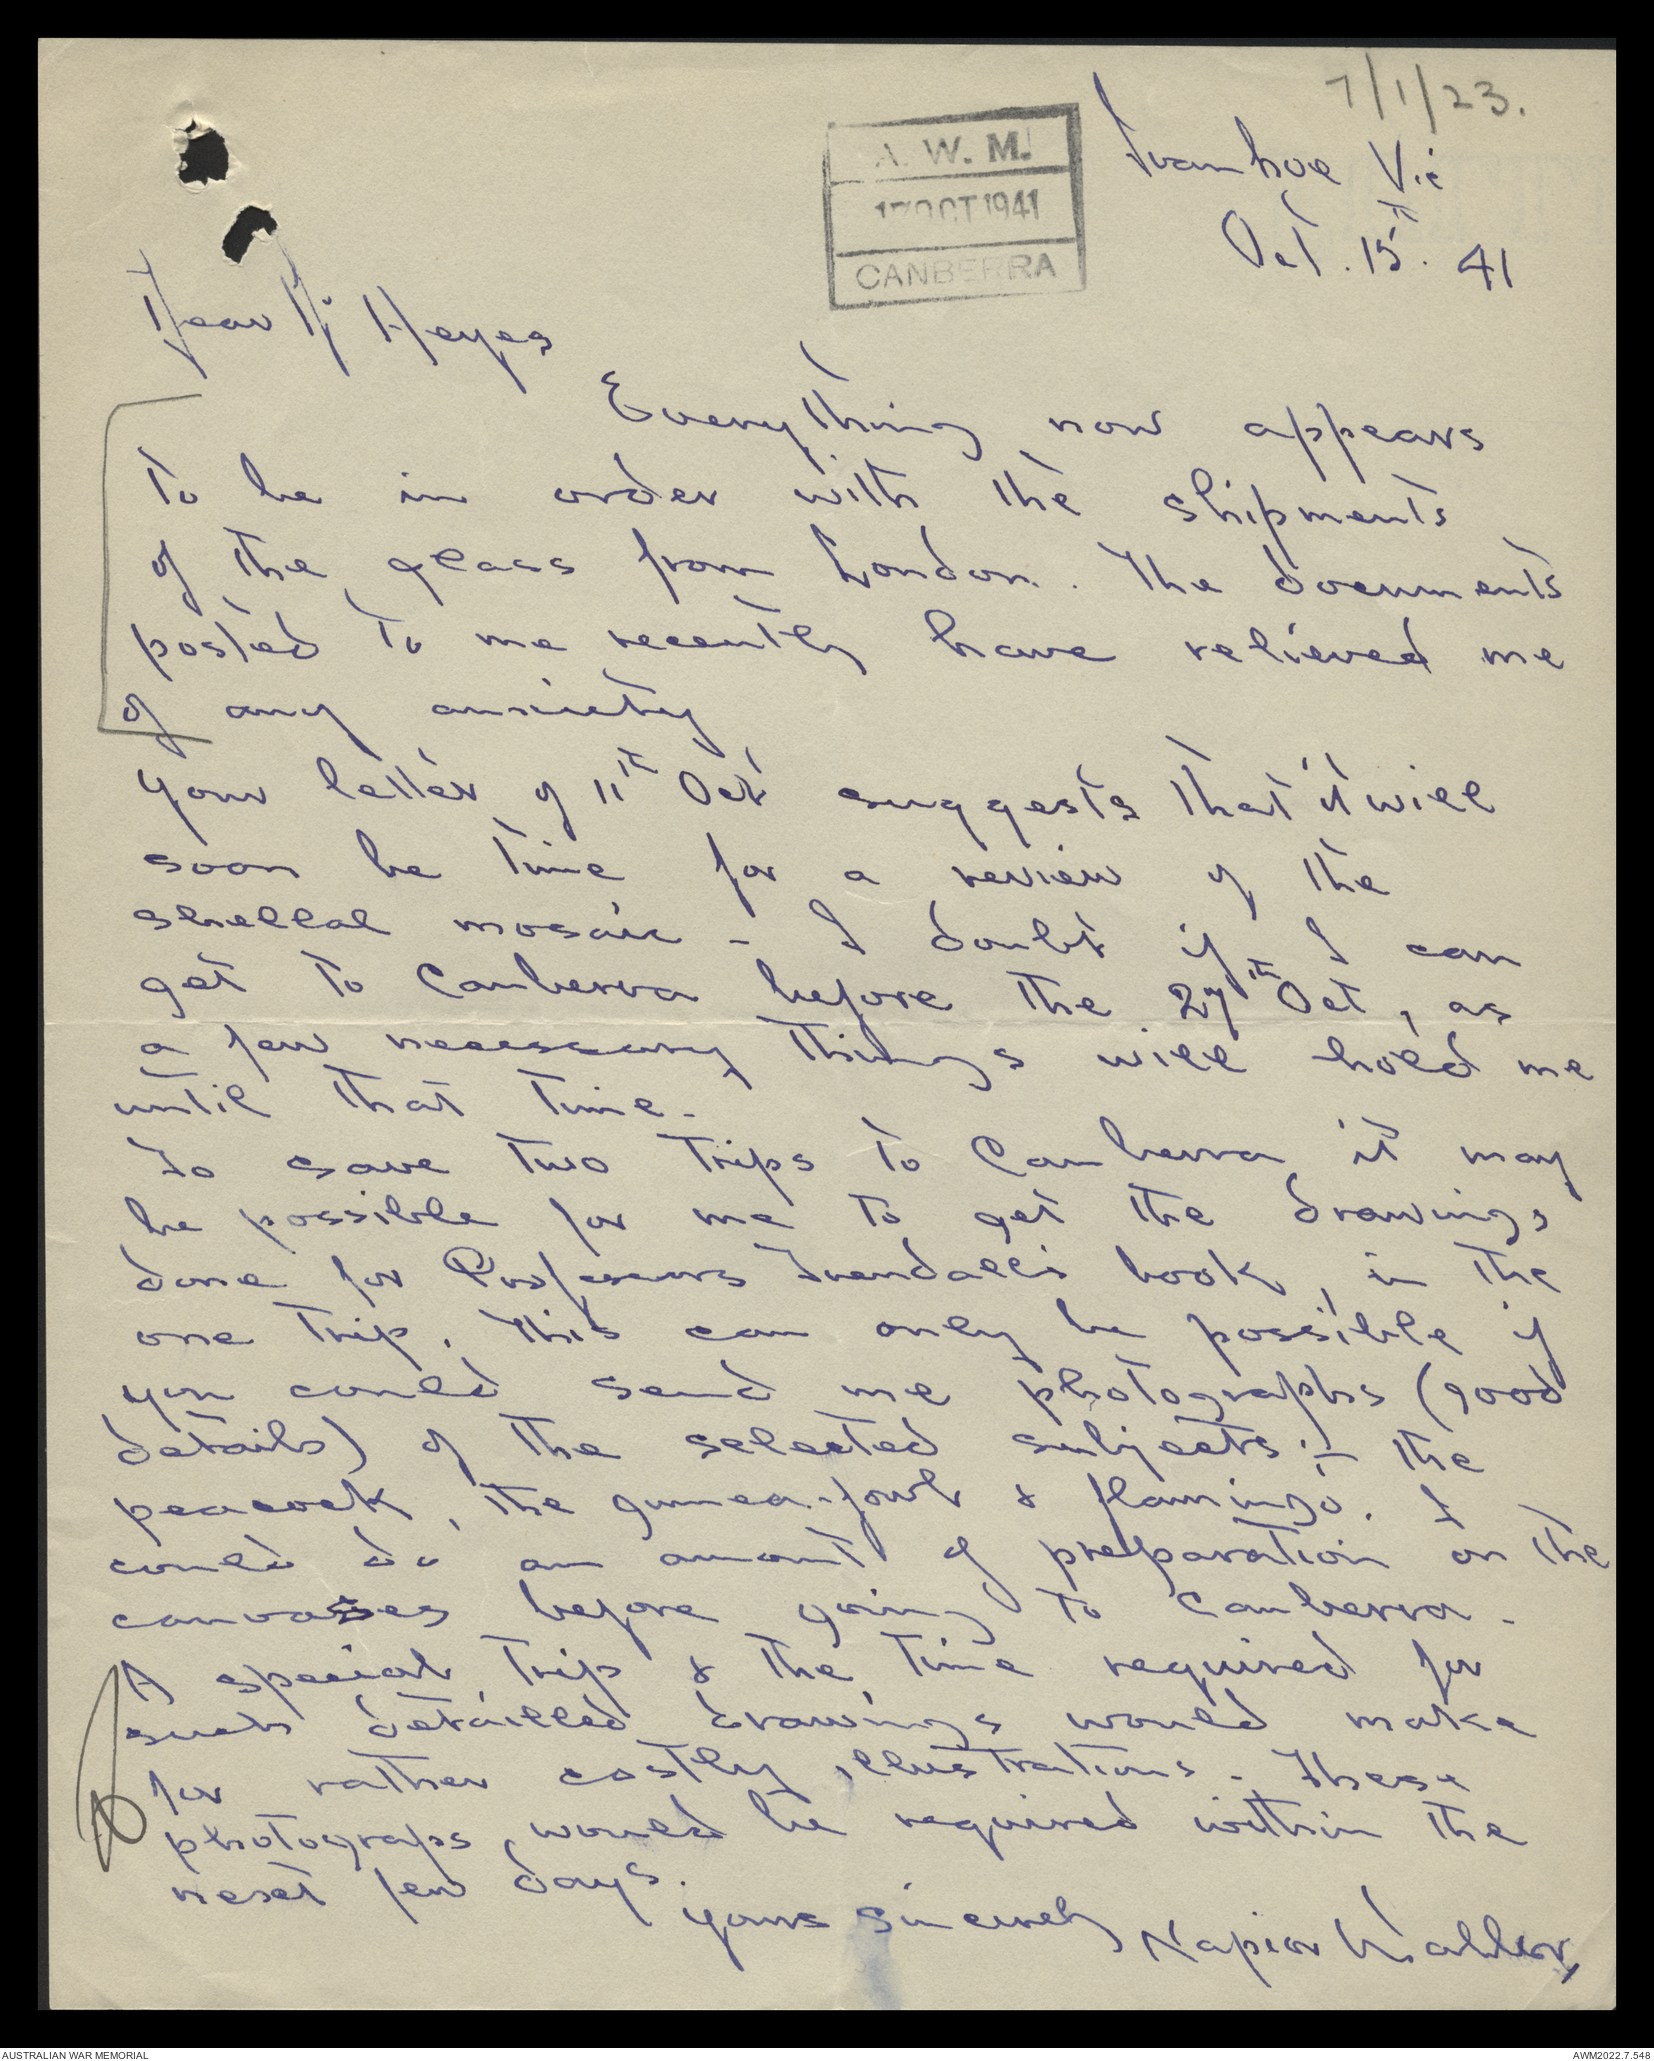 7/1/23.
A. W. M.
17 OCT 1941
CANBERRA
Ivanhoe Vic
Oct. 15th. 41
Dear Mr Heyes
Everything now appears
to be in order with the shipments
of the glass from London. The documents
posted to me recently have relieved me
of any anxiety
Your letter of 11th Oct suggests that it will
soon be time for a review of the
shellal mosaic - I doubt if I can
get to Canberra before the 27th Oct, as
a few necessary things will hold me
until that time.
To save two trips to Canberra it may
be possible for me to get the drawings
done for Professors Trendall's book, in the
one trip. This can only be possible if
you could send me photographs (good
details) of the selected subjects :- the
peacock, the guinea-fowl & flamingo. I
could do an amount of preparation on the
canvasses before going to Canberra.
A special trip & the time required for
such detailled drawings would make
for rather costly illustrations. These
photograps would be required within the
next few days.
Yours sincerely Napier Waller,
AUSTRALIAN WAR MEMORIAL
AWM2022.7.548